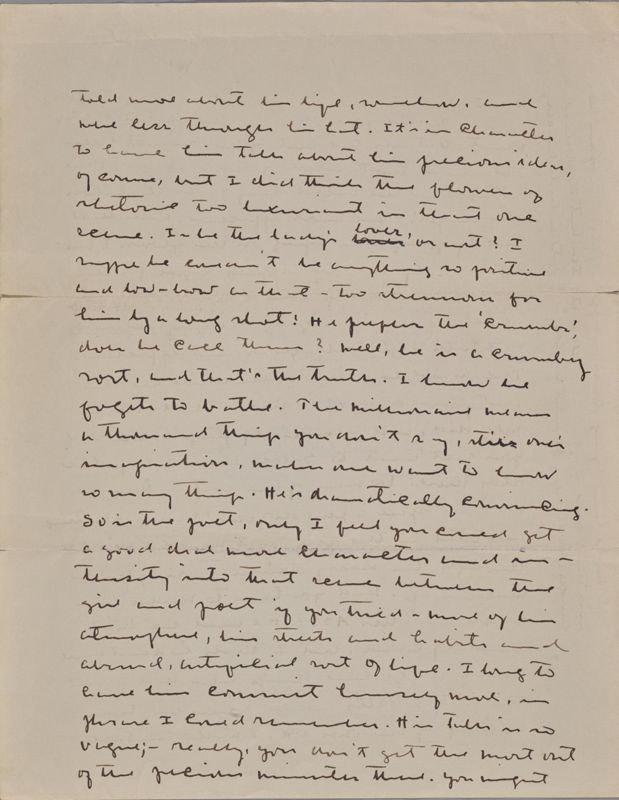 told more about his life, somehow, and
were less through his hat. It's in character
to have him talk about his precious ideas,
of course, but I did think the flowers of
rhetoric too luxuriant in that one
scene. Is he the lady's lover, or not? I
suppose he couldn't be anything so positive
and low-brow as that - too strenuous for
him by a long shot! He prefers the 'crumbs',
does he call them? Well, he is a crumby
sort, and that's the truth. I know he
forgets to bathe. The millionaire means
a thousand things you don't say, stirs one's
imagination, makes one want to know
so many things. He's dramatically convincing.
So is the poet, only I feel you could get
a good deal more character and in-
tensity into that scene between the
girl and poet if you tried - more of his
atmosphere, his streets and habits and
absurd, artificial sort of life. I long to
have him commit himself more, in
phrase I could remember. His talk is so
vague; - really, you don't get the most out
of the precious minutes there. You might